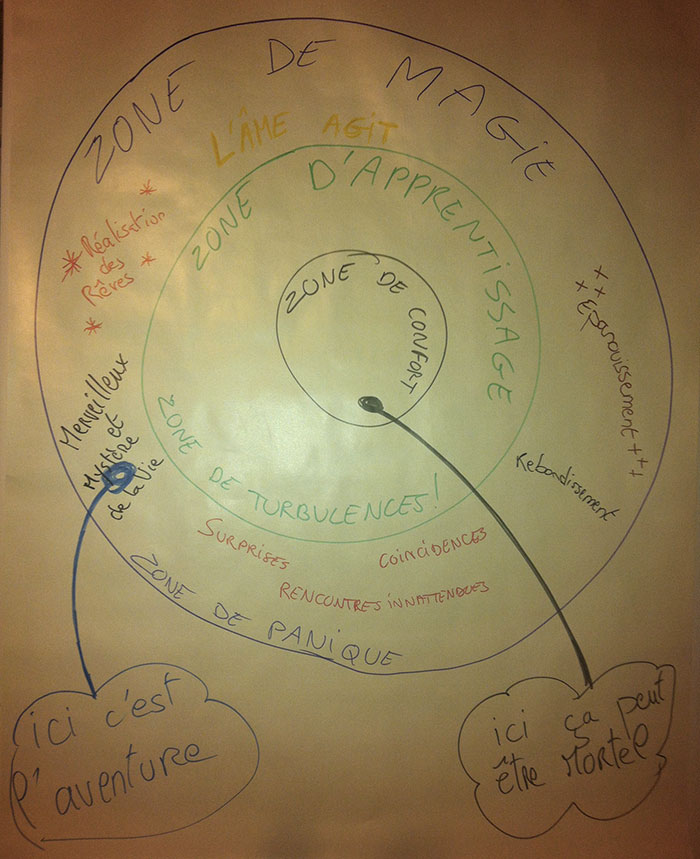 ZONE DE MAGIE
L'ÂME AGIT
ZONE D'APPRENTISSAGE
Réalisation
des
Rêves
ZONE DE CONFORT
+ + + Epanouissement +++
Merveilleux
Mystère et
de la Vie
Rebondissement
ZONE DE TURBULENCES!
SURPRISES
COINCIDENCES
RENCONTRES INNATTENDUES
ZONE DE PANIQUE
ici c'est
l'aventure
ici ça peut
être MORTEL